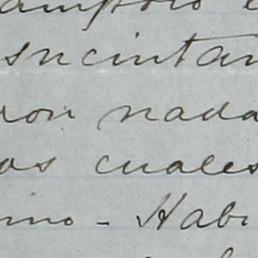 sucintam
ron nada
as cuales
mo - Habi